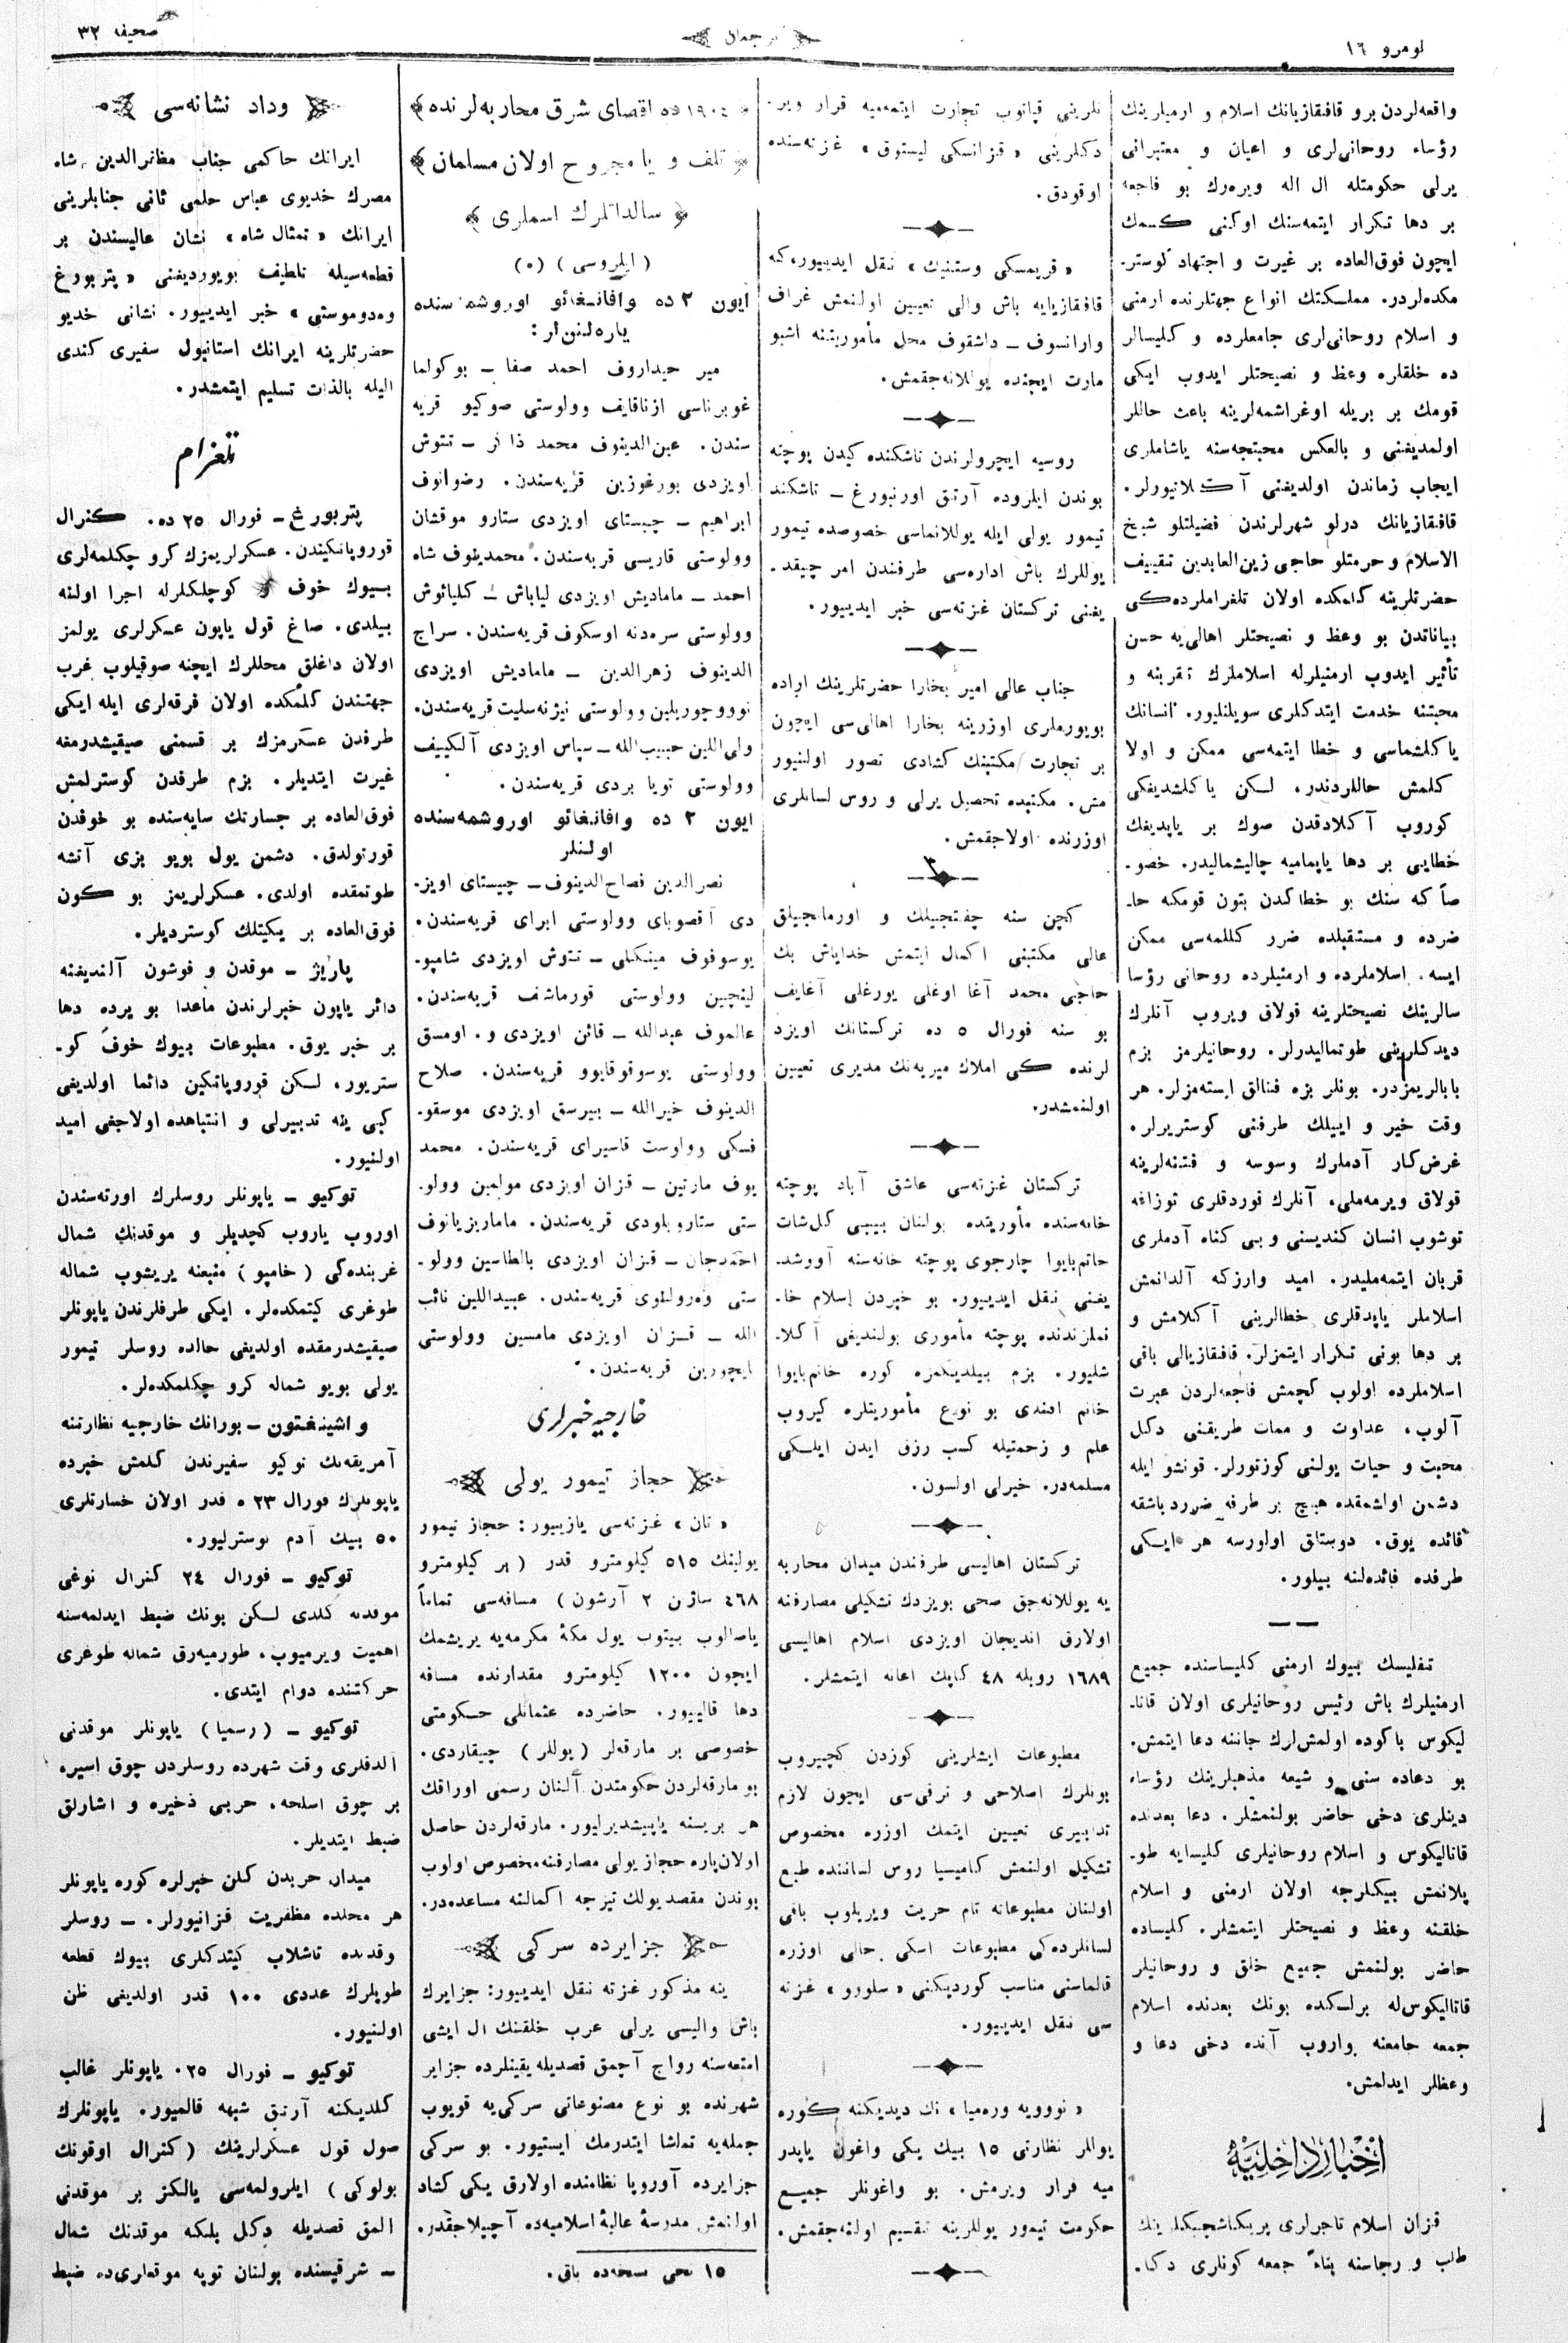 نومرو ١٦
ترجمان
صحيفه ٣٢
واقعه‌لردن برو قافقازيانك اسلام و ارميلرينك
رؤساء روحانى‌لرى و اعيان و معتبرانى
يرلى حكومتله ال اله ويره‌رك بو فاجعه
بر دها تكرار ايتمه‌سنك اوكنى كسمك
ايچون فوق‌العاده بر غيرت و اجتهاد كوستر-
مكده‌لردر. مملكتك انواع جهتلرنده ارمنى
و اسلام روحانى‌لرى جامعلرده و كليسالر
ده خلقلره وعظ و نصيحتلر ايدوب ايكى
قومك بر بريله اوغراشمه‌لرينه باعث حاللر
اولمديغنى و بالعكس محبتجه‌سنه ياشاملرى
ايجاب زماندن اولديغنى آكلاتيورلر.
قافقازيانك درلو شهرلرندن فضيلتلو شيخ
الاسلام و حرمتلو حاجى زين‌العابدين تقييف
حضرتلرينه كلمكده اولان تلغراملرده‌كى
بياناتدن بو وعظ و نصيحتلر اهالى‌يه حسن
تأثير ايدوب ارمنيلرله اسلاملرك تقربنه و
محبتنه خدمت ايتدكلرى سويلنليور. انسانك
ياكلشماسى و خطا ايتمه‌سى ممكن و اولا
كلمش حاللردندر، لكن ياكلشديغكى
كوروب آكلادقدن صوك بر ياپديغك
خطايى بر دها ياپماميه چاليشماليدر. خصو-
صاً كه سنك بو خطاكدن بتون قومكه حا-
ضرده و مستقبلده ضرر كلمه‌سى ممكن
ايسه. اسلاملرده و ارمنيلرده روحانى رؤسا
سالرينك نصيحتلرينه قولاق ويروب آنلرك
ديدكلرينى طوتماليدرلر. روحانيلرمز بزم
بابالريمزدر. بونلر بزه فنالق ايسته‌مزلر. هر
وقت خير و اييلك طرفنى كوستريرلر.
غرض‌كار آدملرك وسوسه و فتنه‌لرينه
قولاق ويرمه‌ملى، آنلرك قوردقلرى توزاغه
توشوب انسان كنديسنى و بى كناه آدملرى
قربان ايتمه‌مليدر. اميد واركه آلدانمش
اسلاملر ياپدقلرى خطالرينى آكلامش و
بر دها بونى تكرار ايتمزلر. قافقازيالى باقى
اسلاملرده اولوب كچمش فاجعه‌لردن عبرت
آلوب، عداوت و ممات طريقنى دكل
محبت و حيات يولنى كوزتورلر. قونشو ايله
دشمن اولشمقده هيچ بر طرفه ضرردباشقه
فائده يوق. دوستلق اولورسه هر ايكى
طرفده فائده‌لنه بيلور.
تفليسك بيوك ارمنى كليساسنده جميع
ارمنيلرك باش رئيس روحانيلرى اولان قاتا-
ليكوس باكوده اولمش‌لرك جاننه دعا ايتمش.
بو دعاده سنى و شيعه مذهبلرينك رؤساء
دينلرى دخى حاضر بولنمشلر. دعا بعدنده
قاتاليكوس و اسلام روحانيلرى كليسايه طو-
پلانمش بيكلرجه اولان ارمنى و اسلام
خلقنه وعظ و نصيحتلر ايتمشلر. كليساده
حاضر بولنمش جميع خلق و روحانيلر
قاتاليكوس‌له برلكده بونك بعدنده اسلام
جمعه جامعنه واروب آنده دخى دعا و
وعظلر ايدلمش.
اخبار داخليه
قزان اسلام تاجرلرى پريكاشچيكلرينك
طلب و رجاسنه بناءً جمعه كونلرى دكا-
نلرينى قپانوب تجارت ايتمه‌ميه قرار وير-
دكلرينى «قزانسكى ليستوق» غزته‌سنده
اوقودق.
«قريمسكى وستنيك» نقل ايدييور، كه
قافقازيايه باش والى تعيين اولنمش غراف
وارانسوف ــ داشقوف محل مأموريتنه اشبو
مارت ايچنده يوللانه‌جقمش.
روسيه ايچرولرندن تاشكنده كيدن پوچته
بوندن ايلروده آرتق اورنبورغ ــ تاشكند
تيمور يولى ايله يوللانماسى خصوصده تيمور
يوللرك باش اداره‌سى طرفندن امر چيقد-
يغنى تركستان غزته‌سى خبر ايدييور.
جناب عالى امير بخارا حضرتلرينك اراده
بويورملرى اوزرينه بخارا اهالى‌سى ايچون
بر تجارت مكتبنك كشادى تصور اولنيور
مش. مكتبده تحصيل يرلى و روس لسانلرى
اوزرنده اولاجقمش.
كچن سنه چفتجيلك و اورمانجيلق
عالى مكتبنى اكمال ايتمش خداياش بك
حاجى محمد آغا اوغلى يورغلى آغايف
بو سنه فورال ٥ ده تركستانك اويزد
لرنده كى املاك ميريه‌نك مديرى تعيين
اولنمشدر.
تركستان غزته‌سى عاشق آباد پوچته
خانه‌سنده مأموريتده بولنان بيبى كل‌شات
خانم‌بايوا چارجوى پوچته خانه‌سنه آووشد-
يغنى نقل ايدييور. بو خبردن اسلام خا-
نملزندنده پوچته مأمورى بولنديغى آكلا-
شليور. بزم بيلديكمزه كوره خانم‌بايوا
خانم افندى بو نوع مأموريتلره كيروب
علم و زحمتيله كسب رزق ايدن ايلكى
مسلمه‌در. خيرلى اولسون.
تركستان اهاليسى طرفندن ميدان محاربه
يه يوللانه‌جق صحى بويزدك تشكيلى مصارفنه
اولارق انديجان اويزدى اسلام اهاليسى
١٦٨٩ روبله ٤٨ كاپك اعانه ايتمشلر.
مطبوعات ايشلرينى كوزدن كچيروب
بونلرك اصلاحى و ترقى‌سى ايچون لازم
تدابيرى تعيين ايتمك اوزره مخصوص
تشكيل اولنمش كاميسيا روس لساننده طبع
اولنان مطبوعاته تام حريت ويريلوب باقى
لسانلرده‌كى مطبوعات اسكى حالى اوزره
قالماسنى مناسب كورديكنى «سلوو» غزته
سى نقل ايدييور.
«نوويه وره‌ميا» نك ديديكنه كوره
يوللر نظارتى ١٥ بيك يكى واغون ياپدر
ميه قرار ويرمش. بو واغونلر جميع
حكومت تيمور يوللرينه تقسيم اولنه‌جقمش.
١٩٠٤ ده اقصاى شرق محاربه‌لرنده
تلف و يا مجروح اولان مسلمان
سالداتلرك اسملرى
(ايلروسى) (٥)
ايون ٢ ده وافانغائو اوروشمه‌سنده
ياره‌لنورلر:
مير حيداروف احمد صفا ــ بوكولما
غوبرناسى ازناقايف وولوستى صوكيو قريه
سندن. عين‌الدينوف محمد ذاكر ــ تتوش
اويزدى بورغوزين قريه‌سندن. رضوانوف
ابراهيم ــ چيستاى اويزدى ستارو موقشان
وولوستى قاريسى قريه‌سندن. محمدينوف شاه
احمد ــ ماماديش اويزدى لياباش ــ كلياتوش
وولوستى سره‌دنه اوسكوف قريه‌سندن. سراج
الدينوف زهرالدين ــ ماماديش اويزدى
نوووچوريلين وولوستى نيژنه‌سليت قريه‌سندن.
ولى‌اللين حبيب‌الله ــ سپاس اويزدى آلكييف
وولوستى تويا بردى قريه‌سندن.
ايون ٢ ده وافانغائو اوروشمه‌سنده
اولنلر
نصرالدين فصاح‌الدينوف ــ چيستاى اويز-
دى آقصوباى وولوستى ابراى قريه‌سندن.
يوسوفوف مينكلى ــ تتوش اويزدى شامپو-
ليتچيين وولوستى قورماشف قريه‌سندن.
عالموف عبدالله ــ قائن اويزدى و. اومسق
وولوستى يوسوقوقابوو قريه‌سندن. صلاح
الدينوف خيرالله ــ بيرسق اويزدى موسقو-
فسكى وولوست قاسيراى قريه‌سندن. محمد
يوف مارتين ــ قزان اويزدى موليين وولو-
ستى ستارويلاودى قريه‌سندن. ماماريزيانوف
احمدجان ــ قزان اويزدى بالطاسين وولو-
ستى قريه‌سندن. عبيداللين نائب
الله ــ قزان اويزدى مامسين وولوستى
ايچورين قريه‌سندن.
خارجيه خبرلرى
حجاز تيمور يولى
«تان» غزته‌سى يازييور: حجاز تيمور
يولينك ٥١٥ كيلومترو قدر (بر كيلومترو
٤٦٨ ساژن ٢ آرشون) مسافه‌سى تماماً
ياصالوب بيتوب يول مكهٔ مكرمه‌يه يريشمك
ايچون ١٢٠٠ كيلومترو مقدارنده مسافه
دها قالييور. حاضرده عثمانلى حكومتى
خصوصى بر مارقه‌لر (پوللر) چيقاردى.
بو مارقه‌لردن حكومتدن آلنان رسمى اوراقك
هر بريسنه ياپيشديرليور. مارقه‌لردن حاصل
اولان‌پاره حجاز يولى مصارفنه‌مخصوص اولوب
بوندن مقصد يولك تيزجه اكمالنه مساعده‌در.
جزايرده سركى
ينه مذكور غزته نقل ايدييور: جزايرك
باش واليسى يرلى عرب خلقنك ال ايشى
امتعه‌سنه رواج آچمق قصديله يقينلرده جزاير
شهرنده بو نوع مصنوعاتى سركى‌يه قويوب
جمله‌يه تماشا ايتدرمك ايستيور. بو سركى
جزايرده آوروپا نظامنده اولارق يكى كشاد
اولنمش مدرسهٔ عاليهٔ اسلاميه‌ده آچيلاجقدر.
١٥ نجى نسخه‌ده باقى.
وداد نشانه‌سى
ايرانك حاكمى جناب مظفرالدين شاه
مصرك خديوى عباس حلمى ثانى جنابلرينى
ايرانك «تمثال شاه» نشان عاليسندن بر
قطعه‌سيله تلطيف بويورديغنى «پتربورغ
وه‌دوموستى» خبر ايدييور. نشانى خديو
حضرتلرينه ايرانك استانبول سفيرى كندى
اليله بالذات تسليم ايتمشدر.
تلغرام
پتربورغ ــ فورال ٢٥ ده. كنرال
قوروپاتكيندن. عسكرلريمزك كرو چكلمه‌لرى
بيوك خوف و كوچلكلرله اجرا اولنه
بيلدى. صاغ قول ياپون عسكرلرى يولمز
اولان داغلق محللرك ايچنه صوقيلوب غرب
جهتندن كلمكده اولان فرقه‌لرى ايله ايكى
طرفدن عسكرمزك بر قسمنى صيقيشدرمغه
غيرت ايتديلر. بزم طرفدن كوسترلمش
فوق‌العاده بر جسارتك سايه‌سنده بو خوفدن
قورتولدق. دشمن يول بويو بزى آتشه
طوتمقده اولدى. عسكرلريمز بو كون
فوق‌العاده بر يكيتلك كوسترديلر.
پاريژ ــ موقدن و فوشون آلنديغنه
دائر ياپون خبرلرندن ماعدا بو يرده دها
بر خبر يوق. مطبوعات بيوك خوف كو-
ستريور، لكن قوروپاتكين دائما اولديغى
كبى ينه تدبيرلى و انتباهده اولاجغى اميد
اولنيور.
توكيو ــ ياپونلر روسلرك اورته‌سندن
اوروب ياروب كچديلر و موقدنك شمال
غربنده‌كى (خامپو) منبعنه يريشوب شماله
طوغرى كيتمكده‌لر. ايكى طرفلرندن ياپونلر
صيقيشدرمقده اولديغى حالده روسلر تيمور
يولى بويو شماله كرو چكلمكده‌لر.
واشينغتون ــ بورانك خارجيه نظارتنه
آمريقه‌نك توكيو سفيرندن كلمش خبرده
ياپونلرك فورال ٢٣ ه قدر اولان خسارتلرى
٥٠ بيك آدم كوسترليور.
توكيو ــ فورال ٢٤ كنرال نوغى
موقدنه كلدى لكن بونك ضبط ايدلمه‌سنه
اهميت ويرميوب، طورميه‌رق شماله طوغرى
حركتنده دوام ايتدى.
توكيو ــ (رسميا) ياپونلر موقدنى
آلدقلرى وقت شهرده روسلردن چوق اسير،
بر چوق اسلحه، حربى ذخيره و اشيارلق
ضبط ايتديلر.
ميدان حربدن كلن خبرلره كوره ياپونلر
هر محلده مظفريت قزانيورلر. ــ روسلر
وقدنده تاشلاب كيتدكلرى بيوك قطعه
طوپلرك عددى ١٠٠ قدر اولديغى ظن
اولنيور.
توكيو ــ فورال ٢٥. ياپونلر غالب
كلديكنه آرتق شبهه قالميور. ياپونلرك
صول قول عسكرلرينك (كنرال اوقونك
بولوكى) ايلرولمه‌سى يالكز بر موقدنى
المق قصديله دكل بلكه موقدنك شمال
ــ شرقيسنده بولنان توپه موقعلرى‌ده ضبط